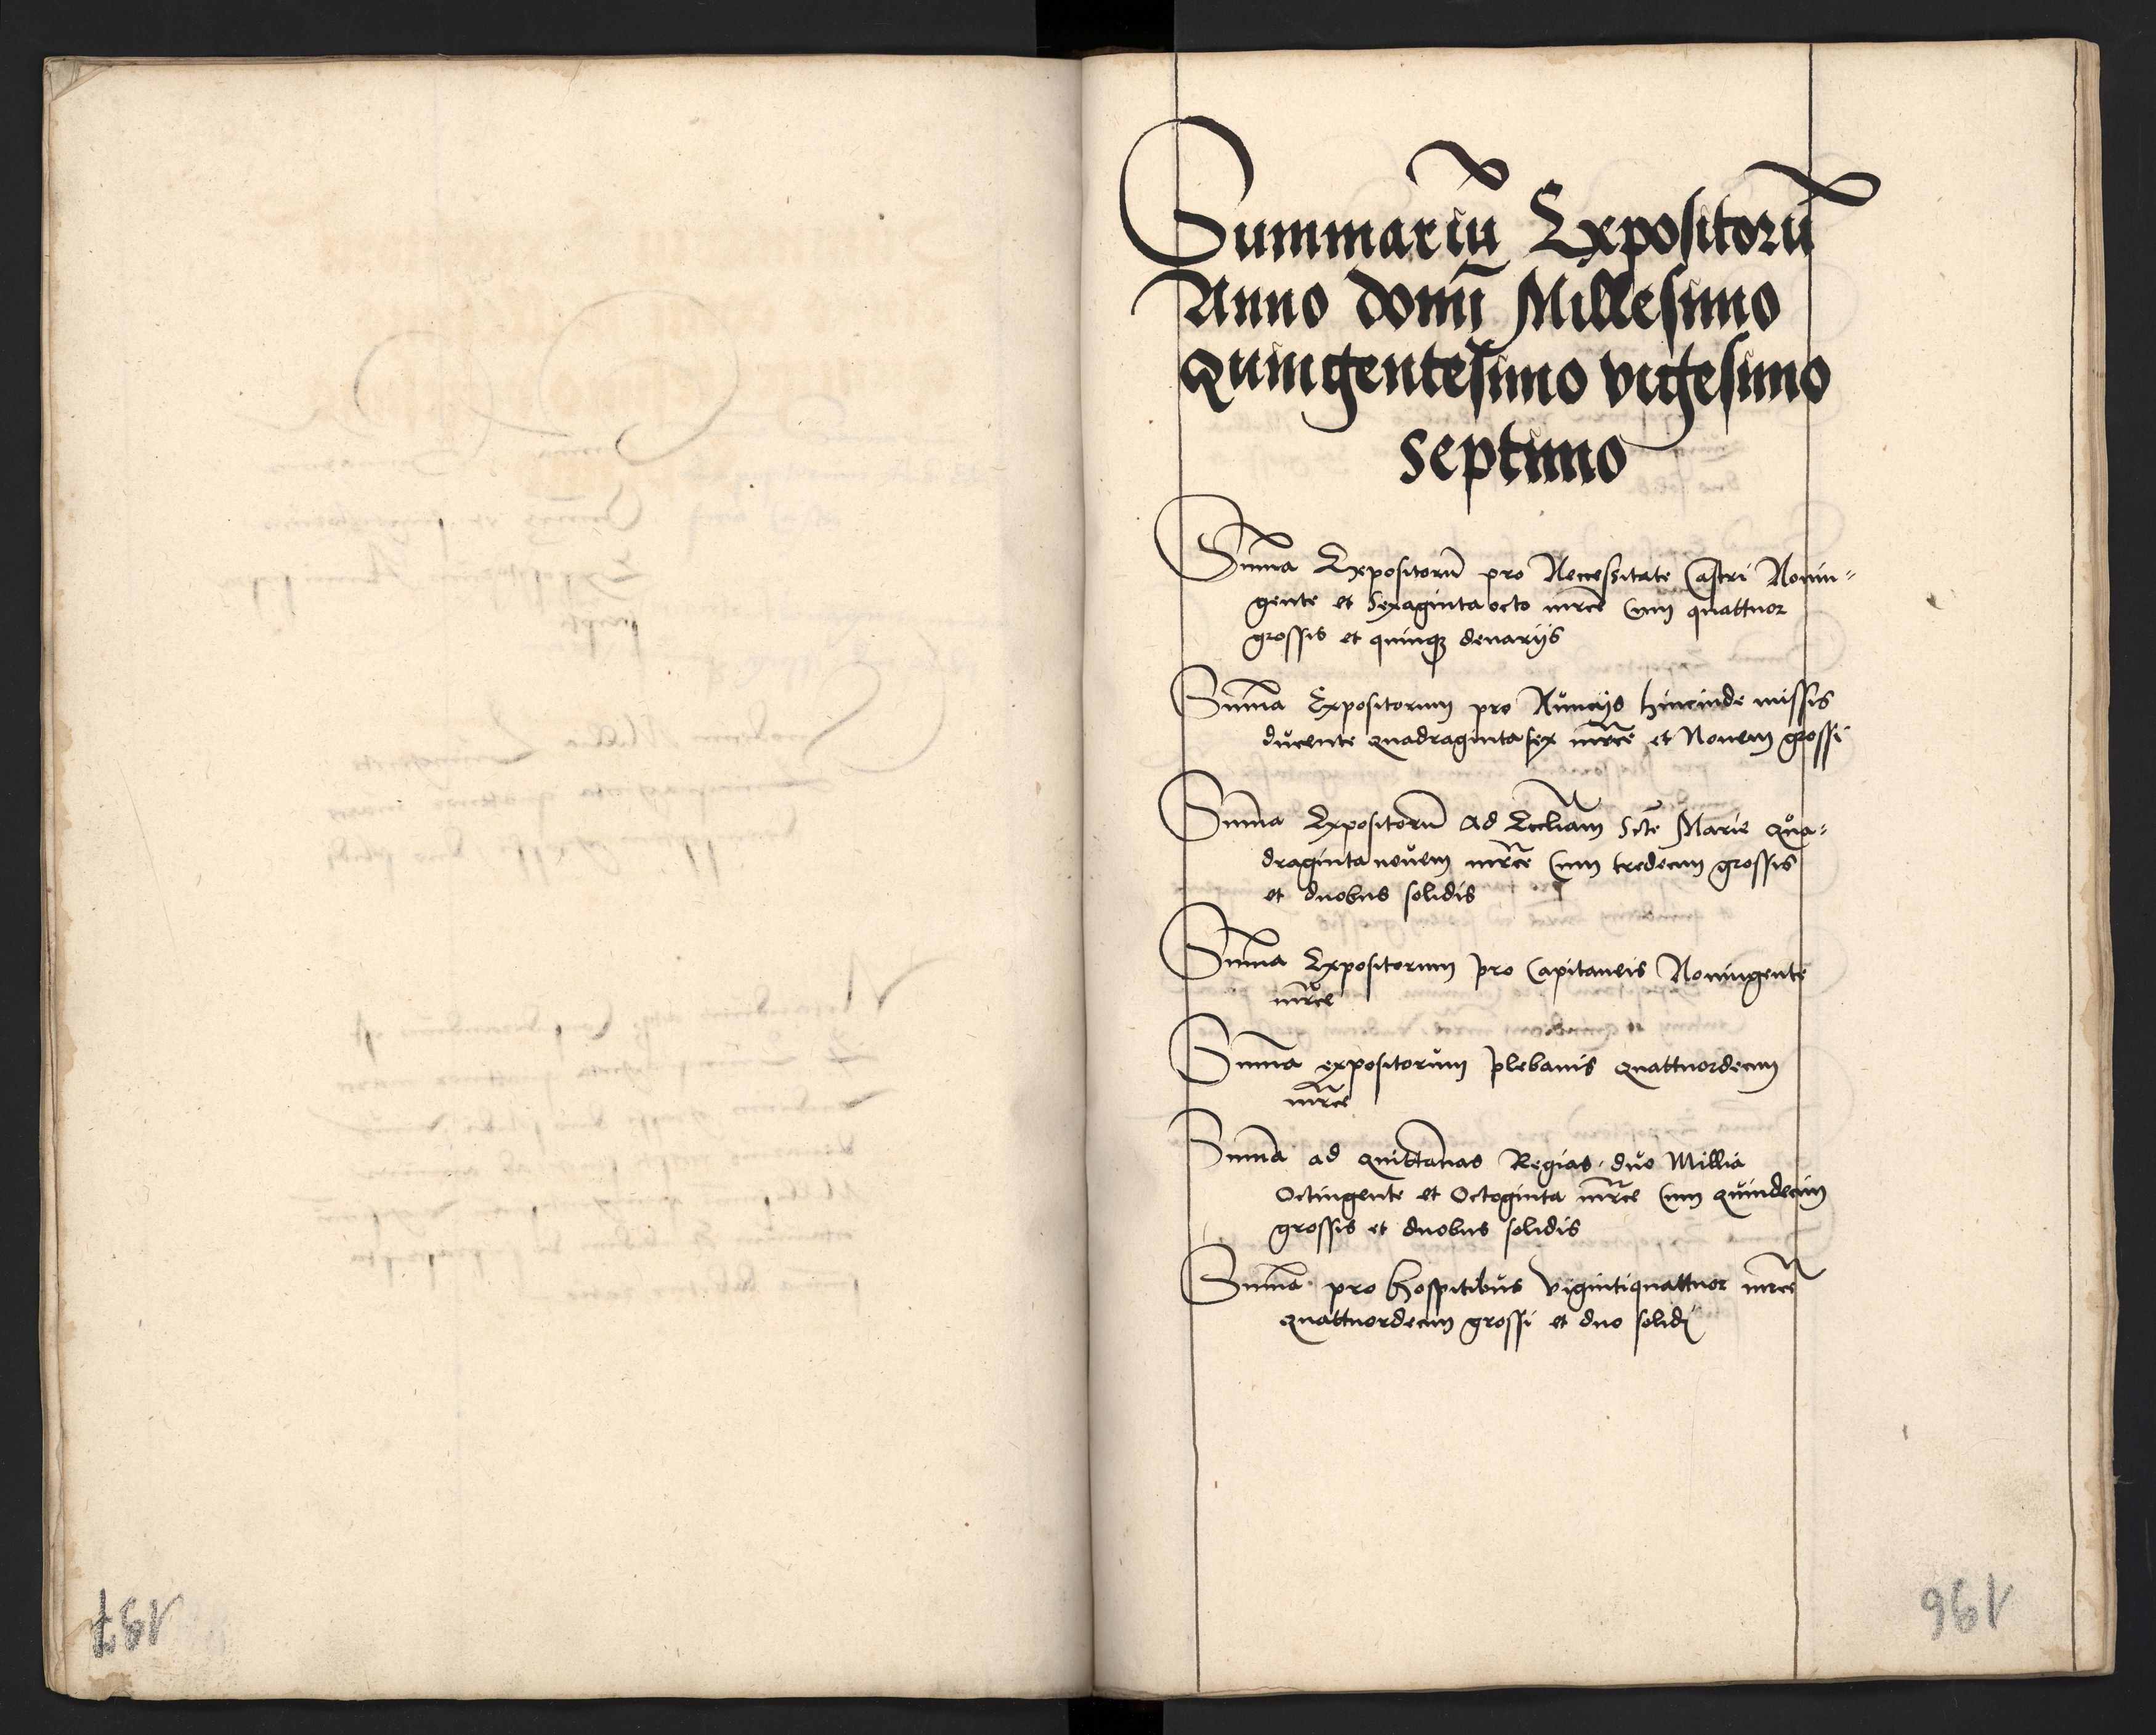 Summariū Expositorū
Anno domī Millesimo
Quingentesimo vigesimo
septimo
Sum̄a Expositorū pro Necessitate Castri Nonin-
gente et Sexaginta octo mrce Cum quattuor
grossis et quinqꝫ denariis
Sum̄a Expositorum pro Nunciis hincinde missis
ducente quadraginta sex mrce et Nouem grossi
Sum̄a Expositorū ad Eccliam Scte Marie Qua-
draginta nouem mrce Cum tredecim grossis
et duobus solidis
Sum̄a Expositorum pro Capitaneis Noningente
mrce
Sum̄a expositorum plebanis quattuordecim
mrce
Sum̄a ad quictancias Regias duo Millia
Octingente et Octoginta mrce Cum quindecim
grossis et duobus solidis
Sum̄a pro hospitibus vigintiquattuor mrce
quattuordecim grossi et duo solidi
196
197